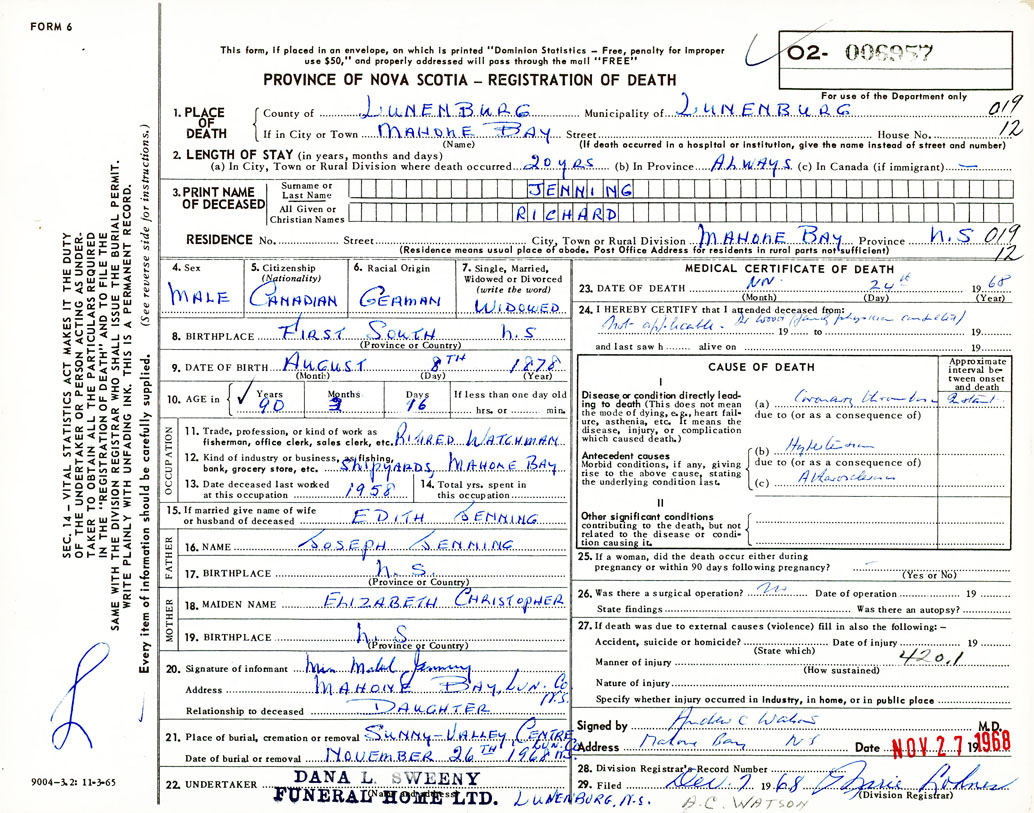 FORM 6
This form, if placed in an envelope, on which is printed "Dominion Statistics – Free, penalty for improper
use $50," and properly addressed will pass through the mail "FREE"
O2- 006957
PROVINCE OF NOVA SCOTIA – REGISTRATION OF DEATH
For use of the Department only
1. PLACE OF DEATH County of LUNENBURG Municipality of LUNENBURG 019
If in City or Town MAHONE BAY Street House No. 12
(Name) (If death occurred in a hospital or institution, give the name instead of street and number)
2. LENGTH OF STAY (in years, months and days)
(a) In City, Town or Rural Division where death occurred 20 YRS (b) In Province ALWAYS (c) In Canada (if immigrant) —
3. PRINT NAME OF DECEASED Surname or Last Name JENNING
All Given or Christian Names RICHARD
RESIDENCE No. Street City, Town or Rural Division MAHONE BAY Province N.S 019
(Residence means usual place of abode. Post Office Address for residents in rural parts not sufficient) 12
SEC. 14 – VITAL STATISTICS ACT MAKES IT THE DUTY
OF THE UNDERTAKER OR PERSON ACTING AS UNDER-
TAKER TO OBTAIN ALL THE PARTICULARS REQUIRED
IN THE "REGISTRATION OF DEATH" AND TO FILE THE
SAME WITH THE DIVISION REGISTRAR WHO SHALL ISSUE THE BURIAL PERMIT.
WRITE PLAINLY WITH UNFADING INK. THIS IS A PERMANENT RECORD.
Every item of information should be carefully supplied. (See reverse side for instructions.)
4. Sex MALE
5. Citizenship (Nationality) CANADIAN
6. Racial Origin GERMAN
7. Single, Married, Widowed or Divorced (write the word) WIDOWED
8. BIRTHPLACE FIRST SOUTH N.S
(Province or Country)
9. DATE OF BIRTH AUGUST 8TH 1878
(Month) (Day) (Year)
10. AGE in Years 90 Months 3 Days 16 If less than one day old hrs. or min.
OCCUPATION
11. Trade, profession, or kind of work as
fisherman, office clerk, sales clerk, etc. RETIRED WATCHMAN
12. Kind of industry or business, as fishing,
bank, grocery store, etc. SHIPYARDS, MAHONE BAY
13. Date deceased last worked at this occupation 1958
14. Total yrs. spent in this occupation
15. If married give name of wife or husband of deceased EDITH JENNING
FATHER
16. NAME JOSEPH JENNING
17. BIRTHPLACE N.S.
(Province or Country)
MOTHER
18. MAIDEN NAME ELIZABETH CHRISTOPHER
19. BIRTHPLACE N.S
(Province or Country)
20. Signature of informant Mrs Mabel Jenning
Address MAHONE BAY, LUN. Co N.S.
Relationship to deceased DAUGHTER
21. Place of burial, cremation or removal SUNNY-VALLEY CENTRE LUN. Co
Date of burial or removal NOVEMBER 26TH 1968 N.S.
22. UNDERTAKER DANA L. SWEENY
(Name and address)
FUNERAL HOME LTD. LUNENBURG, N.S.
9004-3.2: 11-3-65
MEDICAL CERTIFICATE OF DEATH
23. DATE OF DEATH NOV. 24th 1968
(Month) (Day) (Year)
24. I HEREBY CERTIFY that I attended deceased from:
Not applicable. physician
19 to 19
and last saw h alive on 19
CAUSE OF DEATH
Approximate interval between onset and death
I
Disease or condition directly leading to death (This does not mean the mode of dying, e.g., heart failure, asthenia, etc. It means the disease, injury, or complication which caused death.)
(a) Coronary thrombosis Instant
due to (or as a consequence of)
Antecedent causes
Morbid conditions, if any, giving rise to the above cause, stating the underlying condition last.
(b) Hypertension
due to (or as a consequence of)
(c) Atherosclerosis
II
Other significant conditions
contributing to the death, but not related to the disease or condition causing it.
25. If a woman, did the death occur either during
pregnancy or within 90 days following pregnancy? –
(Yes or No)
26. Was there a surgical operation? No Date of operation 19
State findings Was there an autopsy?
27. If death was due to external causes (violence) fill in also the following: –
Accident, suicide or homicide? Date of injury 19
(State which)
Manner of injury 420.1
(How sustained)
Nature of injury
Specify whether injury occurred in Industry, in home, or in public place
Signed by Andrew C Watson M.D.
Address Mahone Bay NS Date NOV 27 1968
28. Division Registrar's Record Number
29. Filed Dec. 7 1968
(Division Registrar)
A.C. WATSON